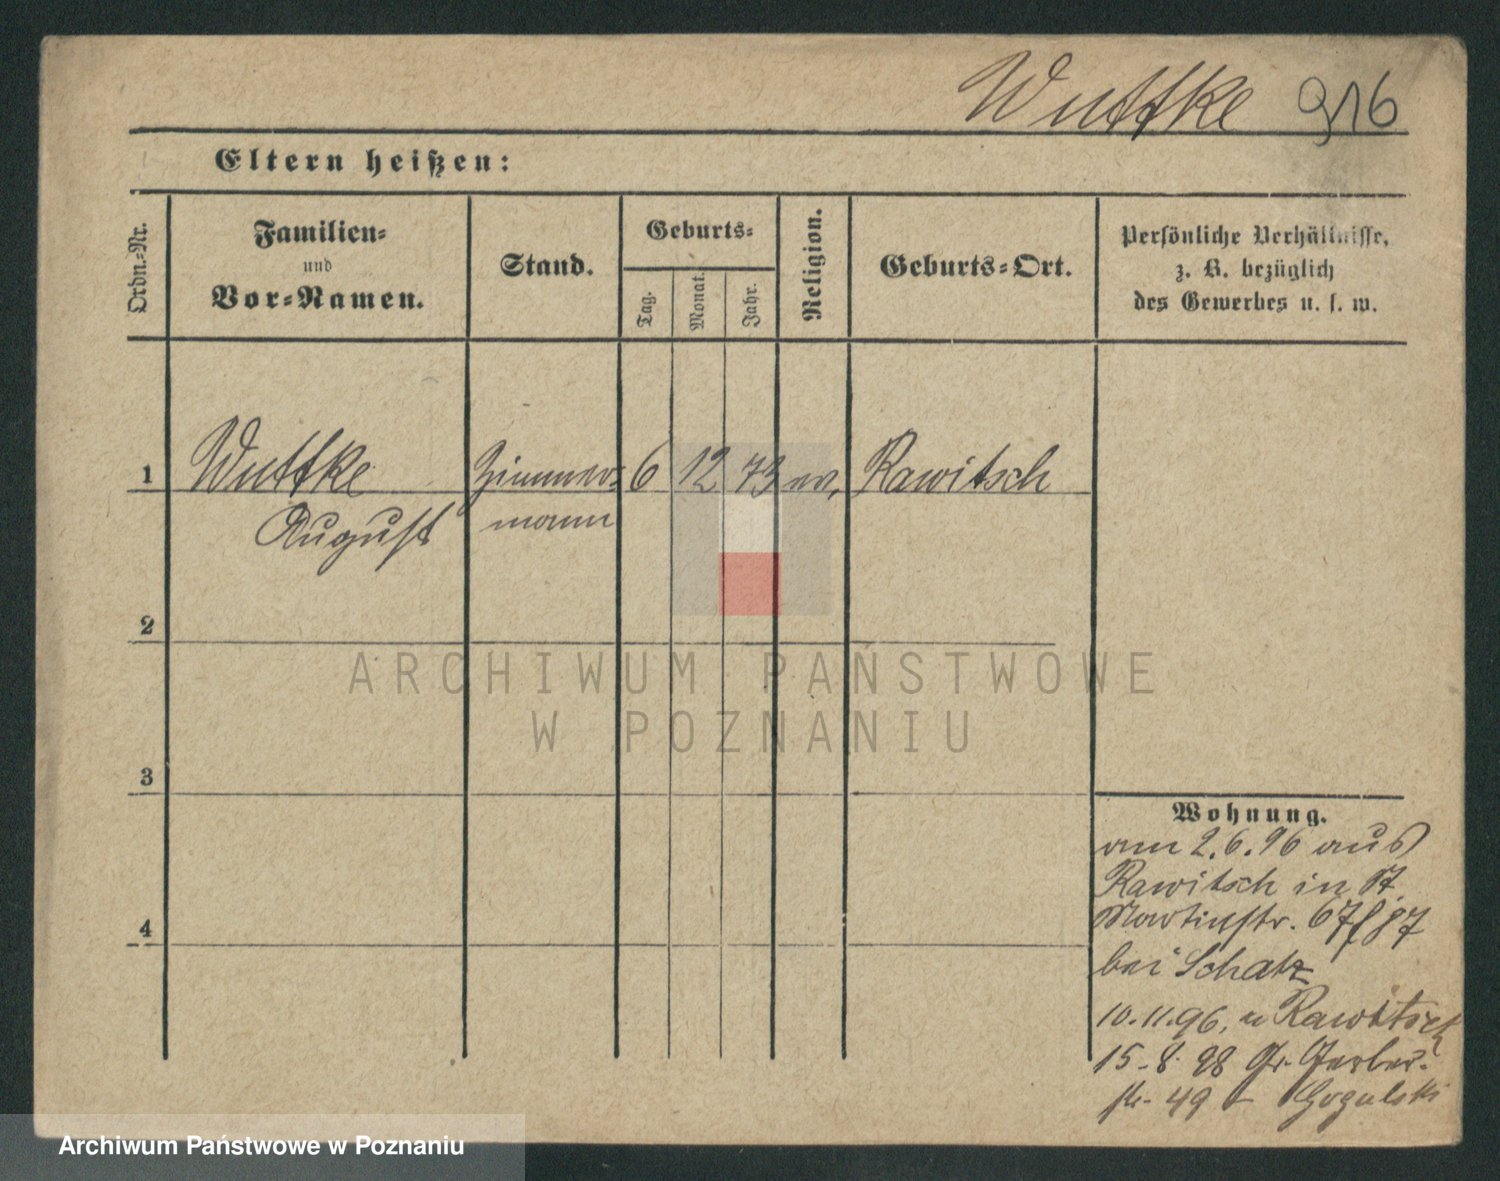 Wuttke 916
Eltern heißen:
Ordn.-Nr.
Familien-
und
Vor-Namen.
Stand.
Geburts-
Tag.
Monat.
Jahr.
Religion.
Geburts-Ort.
Persönliche Verhältnisse,
z. B. bezüglich
des Gewerbes u. s. w.
1 Wuttke Zimmer- 6 12 73 ev. Rawitsch
August mann
2
3
4
Wohnung.
am 2.6.96 aus
Rawitsch in St.
Martinstr. 67
bei Schatz
10.11.96. n Rawitsch
15.8.98 Gr. Gerber-
str. 49 - Gogulski
ARCHIWUM PAŃSTWOWE
W POZNANIU
Archiwum Państwowe w Poznaniu